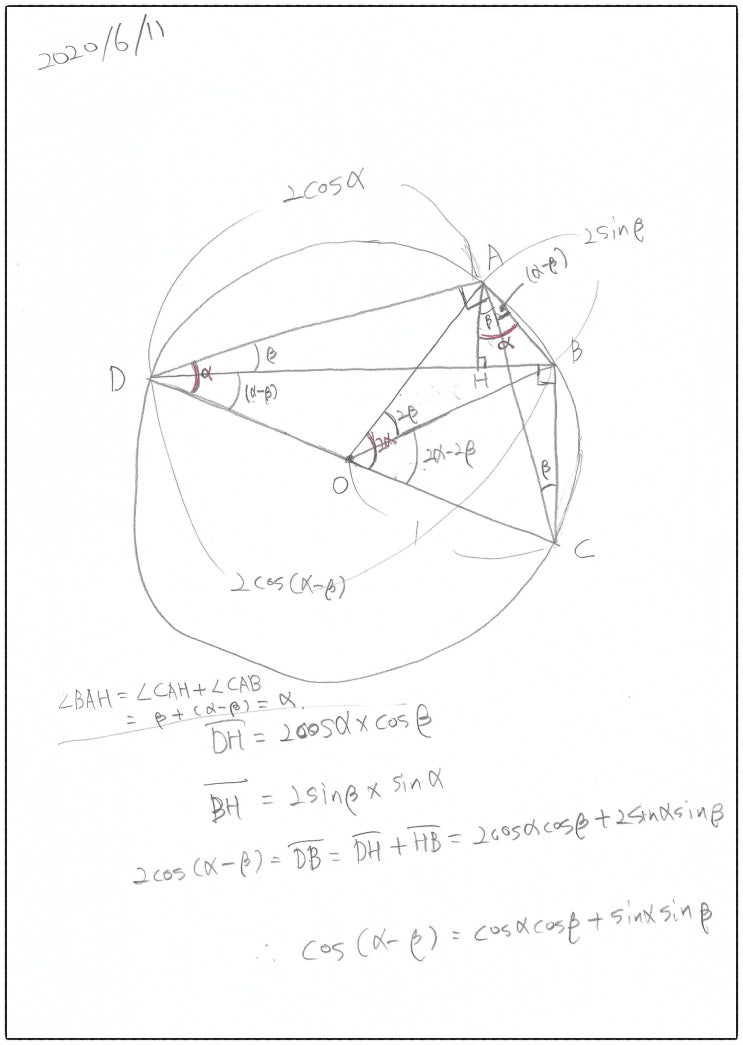 2020/6/11
2cosα
2sinβ
A
(α-β)
β
α
B
D
α
β
(α-β)
H
2β
2α
2α-2β
O
β
1
C
2cos(α-β)
∠BAH = ∠CAH + ∠CAB
= β + (α-β) = α.
DH = 2cosα × cosβ
BH = 2sinβ × sinα
2cos(α-β) = DB = DH + HB = 2cosαcosβ + 2sinαsinβ
∴ cos(α-β) = cosαcosβ + sinαsinβ